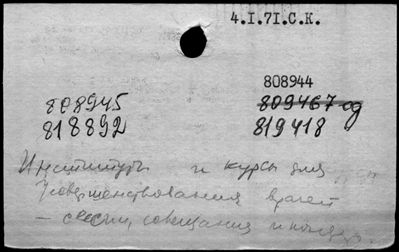 4.I.7I.С.К.
808944
808945 809467 од
818892 819418
Институты и курсы для
Усовершенствования врачей
— сессии, совещания и